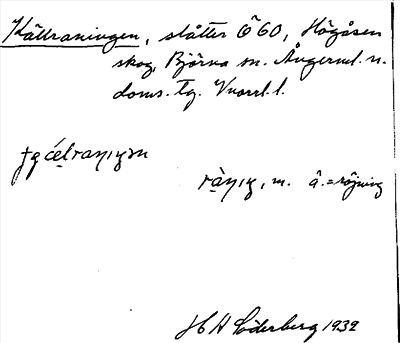 Källraningen, slåtter Ö60, Högåsen
skog, Björna sn. Ångerml. n.
doms. Tg. Vnorrl. l.
ràṇıg, m. â. = röjning
H A Söderberg 1932